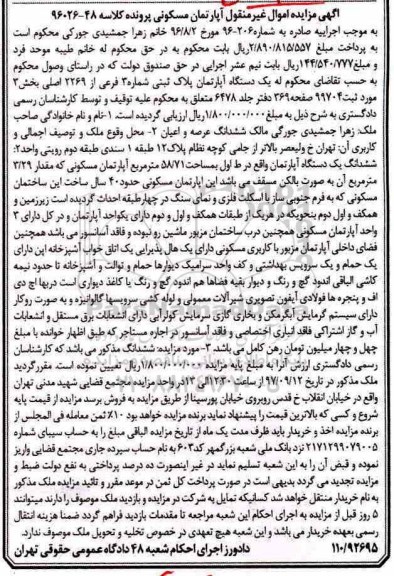 آگهی مزایده اموال غیرمنقول آپارتمان مسکونی پرونده کلاسه ۴۸-۹۶۰۲۶
به موجب اجراییه صادره به شماره ۲۰۶-۹۶ مورخ ۹۶/۸/۲ خانم زهرا جمشیدی جورگی محکوم است
به پرداخت مبلغ ۲/۸۹۰/۸۱۵/۵۵۷ ریال بابت محکوم به در حق محکوم له خانم طیبه موحد فرد
و مبلغ ۱۴۴/۵۴۰/۷۷۷ ریال بابت نیم عشر اجرایی در حق صندوق دولت که در راستای وصول محکوم
به حسب تقاضای محکوم له یک دستگاه آپارتمان پلاک ثبتی شماره ۳ فرعی از ۲۲۶۹ اصلی بخش ۳
مورد ثبت ۹۹۷۰۴ صفحه ۳۶۹ دفتر جلد ۶۴۷۸ متعلق به محکوم علیه توقیف و توسط کارشناس رسمی
دادگستری به شرح ذیل به مبلغ ۱/۸۰۰/۰۰۰/۰۰۰ ریال ارزیابی گردیده است. ۱-نام و نام خانوادگی صاحب
ملک: زهرا جمشیدی جورگی مالک ششدانگ عرصه و اعیان ۲- محل وقوع ملک و توصیف اجمالی و
کاربری آن: تهران خ ولیعصر بالاتر از جامی کوچه نظام پلاک ۱۲ طبقه ۱ سندی طبقه دوم رویتی واحد ۲:
ششدانگ یک دستگاه آپارتمان واقع در ط اول بمساحت ۵۸/۷۱ مترمربع آپارتمان مسکونی که مقدار ۳/۲۹
مترمربع آن به صورت بالکن مسقف می باشد این آپارتمان مسکونی حدود ۴۰ سال ساخت این ساختمان
مسکونی که به فرم جنوبی ساز با اسکلت فلزی و نمای سنگ در چهارطبقه احداث گردیده است زیرزمین و
همکف و اول دوم بنحویکه در هریک از طبقات همکف و اول و دوم دارای یکواحد آپارتمان و در کل دارای ۳
واحد آپارتمان مسکونی همچنین درب ساختمان مزبور ماشین رو نبوده و فاقد آسانسور می باشد همچنین
فضای داخلی آپارتمان مزبور با کاربری مسکونی دارای یک هال پذیرایی یک اتاق خواب آشپزخانه اپن دارای
یک حمام و یک سرویس بهداشتی و کف واحد سرامیک دیوارها حمام و توالت و آشپزخانه تا حدود نیمه
کاشی الباقی اندود گچ و رنگ و دیوار بقیه فضاها هم اندود گچ و رنگ یا کاغذ دیواری است دربها اچ دی
اف و پنجره ها فولادی آیفون تصویری شیرآلات معمولی و لوله کشی سرویسها گالوانیزه و به صورت روکار
دارای سیستم گرمایش آبگرمکن و بخاری گازی سرمایش کولرآبی دارای انشعابات برق مستقل و انشعابات
آب و گاز اشتراکی فاقد انباری اختصاصی و فاقد آسانسور در اجاره مستاجر که طبق اظهار خوانده با مبلغ
چهل و چهار میلیون تومان رهن کامل می باشد. ۳- مورد مزایده: ششدانگ مذکور می باشد که کارشناسان
رسمی دادگستری ارزش آنرا به مبلغ پایه مزایده ۱/۸۰۰/۰۰۰/۰۰۰ ریال تعیین نموده است. مقرر گردید
ملک مذکور در تاریخ ۹۷/۰۹/۱۲ از ساعت ۱۲:۳۰ الی ۱۳ در واحد مزایده مجتمع قضایی شهید مدنی تهران
واقع در خیابان انقلاب خ قدس روبروی خیابان پورسینا از طریق مزایده به فروش برسد مزایده از قیمت پایه
شروع و کسی که بالاترین قیمت را پیشنهاد نماید برنده مزایده خواهد بود ۱۰٪ ثمن معامله فی المجلس از
برنده مزایده اخذ و خریدار باید ظرف مدت یک ماه از تاریخ مزایده الباقی مبلغ را به حساب سیبای شماره
۲۱۷۱۲۹۹۰۷۹۰۰۵ نزد بانک ملی شعبه بزرگمهر کد ۶۰۳ به نام حساب سپرده جاری مجتمع قضایی واریز
نموده و قبض آن را به این شعبه تسلیم نماید در غیر اینصورت ده درصد پرداختی به نفع دولت ضبط و
مزایده تجدید می گردد بدیهی است در صورت پرداخت کل ثمن در موعد مقرر و تائید مزایده ملک مذکور
به نام خریدار منتقل خواهد شد کسانیکه تمایل به شرکت در مزایده و بازدید ملک موصوف را دارند میتوانند
۵ روز قبل از مزایده به اجرای احکام این شعبه مراجعه تا مقدمات بازدید فراهم گردد ضمنا هزینه انتقال
رسمی بعهده خریدار می باشد و این شعبه هیچ تعهدی در خصوص تخلیه و تحویل ملک موصوف ندارد.
۱۱۰/۹۲۶۹۵ دادورز اجرای احکام شعبه ۴۸ دادگاه عمومی حقوقی تهران